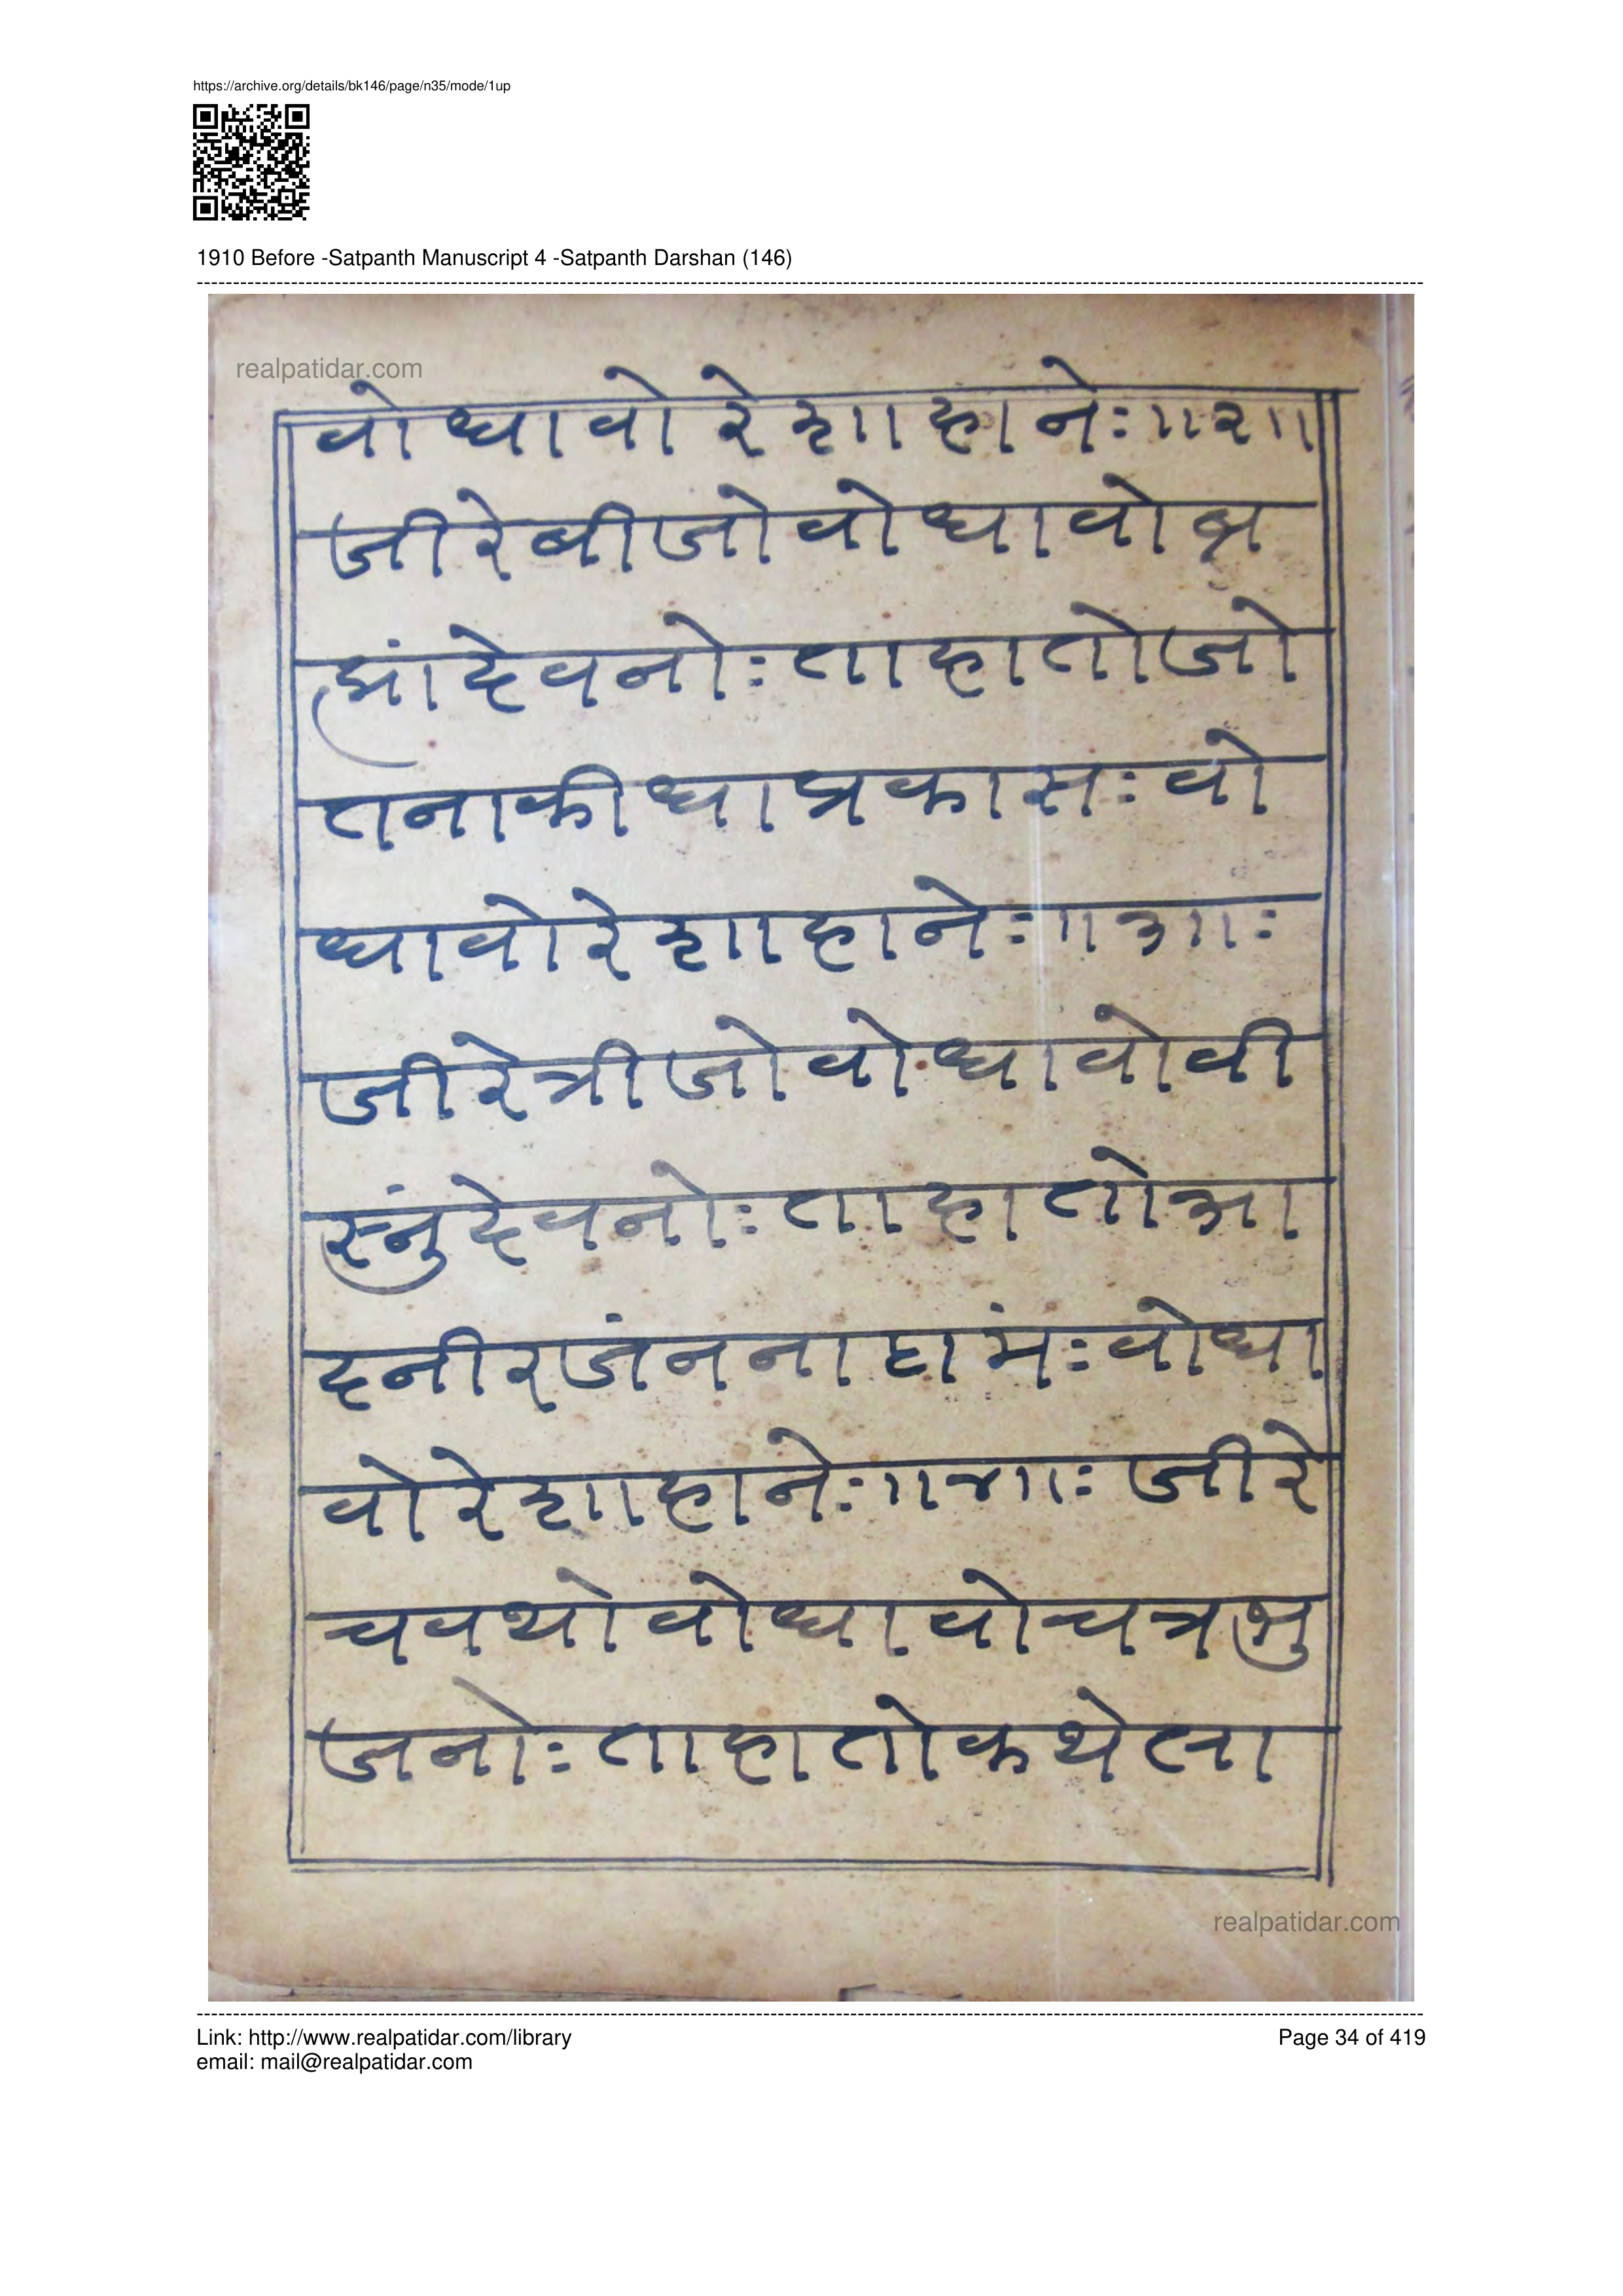 https://archive.org/details/bk146/page/n35/mode/1up
1910 Before -Satpanth Manuscript 4 -Satpanth Darshan (146)
realpatidar.com
वोधावोरेशाहानेः॥२॥
जीरेबीजोवोधावोब्र
ह्मांदेवनोः ताहातोजो
तनाकीधाप्रकासः वो
धावोरेशाहानेः॥३॥ः
जीरेत्रीजोवोधावोवी
स्नुंदेवनोः ताहातोआ
दनीरजंननाहामंः वोधा
वोरेशाहानेः॥४॥ः जीरे
चवथोवोधावोचत्रभु
जनोः ताहातोकथेला
realpatidar.com
Link: http://www.realpatidar.com/library
email: mail@realpatidar.com
Page 34 of 419